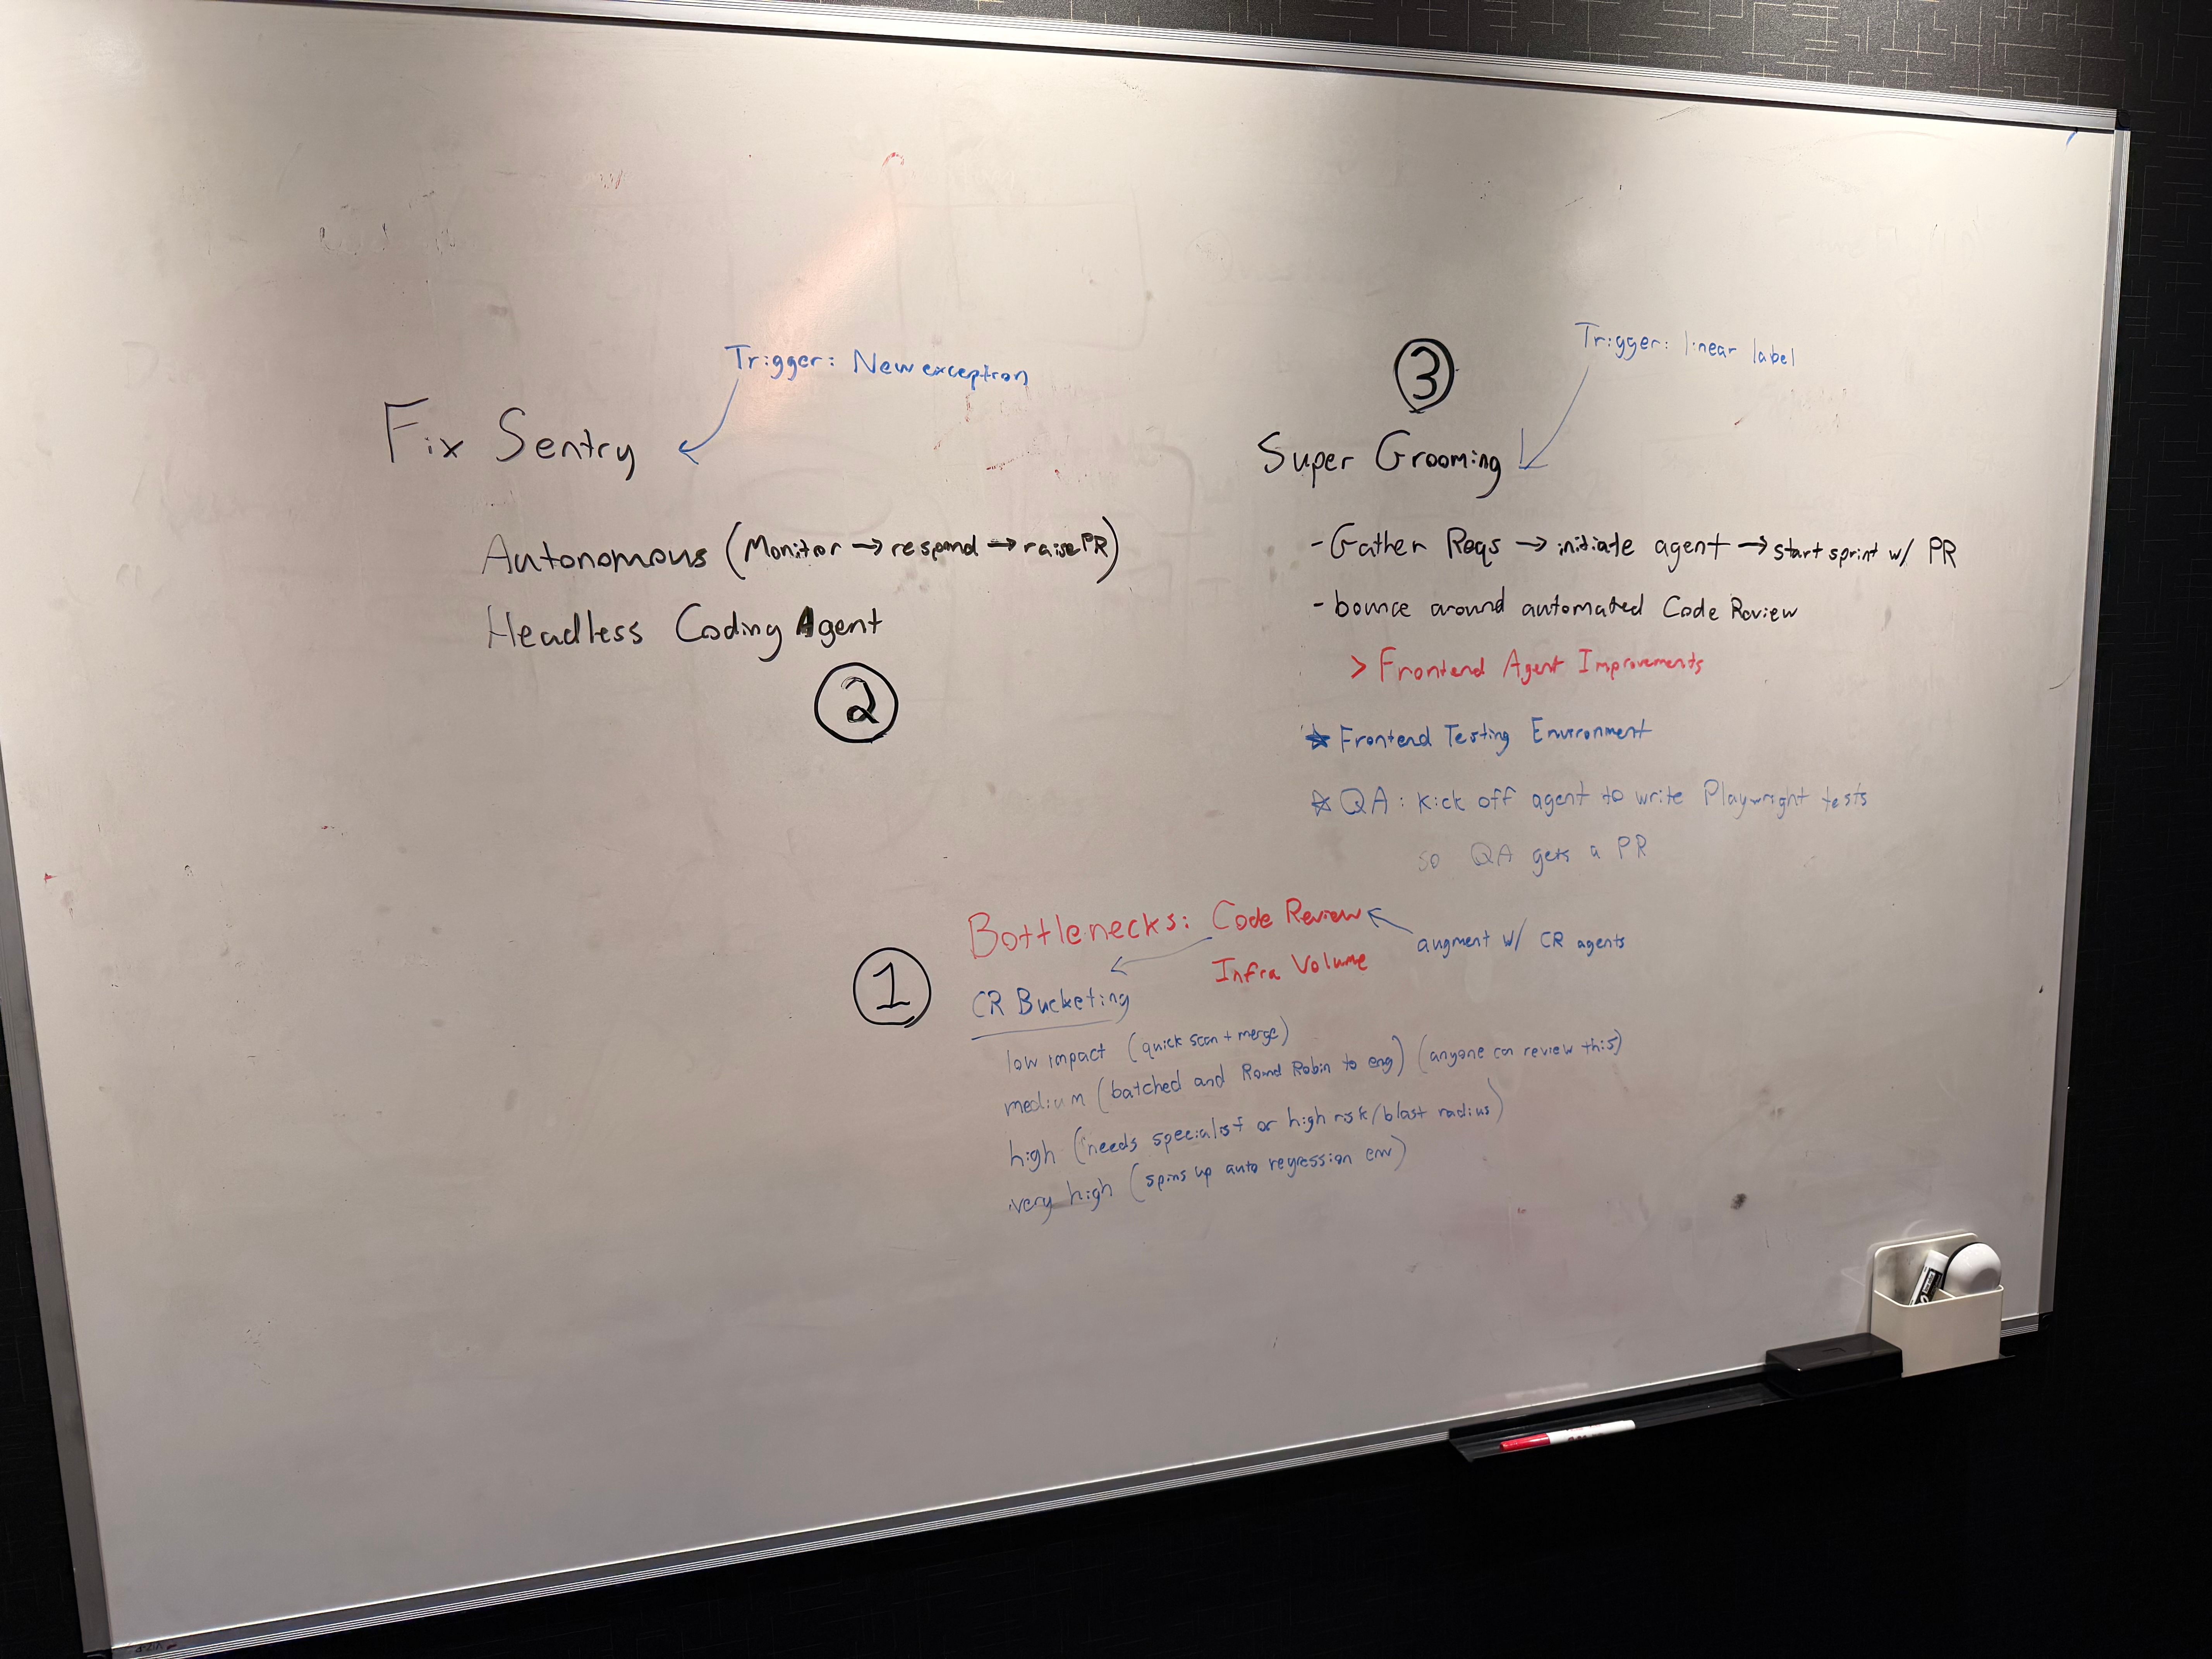 Trigger: New exception
Fix Sentry
Autonomous (Monitor → respond → raise PR)
Headless Coding Agent
2
3
Trigger: linear label
Super Grooming
- Gather Reqs → initiate agent → start sprint w/ PR
- bounce around automated Code Review
> Frontend Agent Improvements
☆ Frontend Testing Environment
☆ QA: kick off agent to write Playwright tests
so QA gets a PR
1
Bottlenecks: Code Review
augment w/ CR agents
Infra Volume
CR Bucketing
low impact (quick scan + merge)
medium (batched and Round Robin to eng) (anyone can review this)
high (needs specialist or high risk/blast radius)
very high (spins up auto regression env)